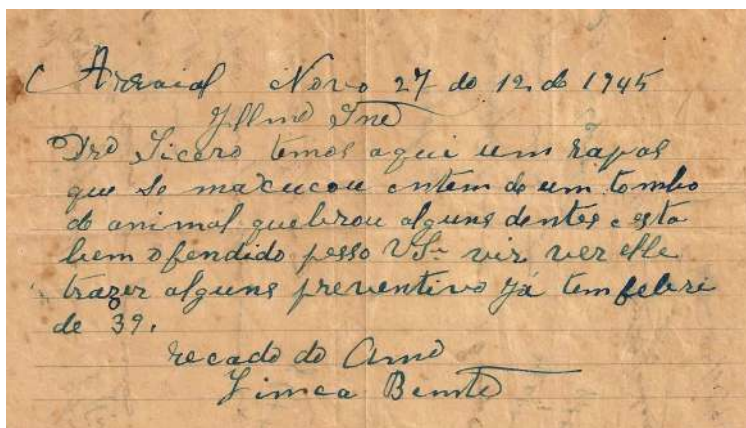 Arraial Novo 27 do 12 de 1945
Illmo Snr
Dro Sicero temos aqui um rapas
que se maxucou ontem de um tombo
de animal quebrou alguns dentes e esta
bem ofendido pesso VS- vir ver elle
trazer alguns preventivo já tem febri
de 39.
recado do Amo
Bento